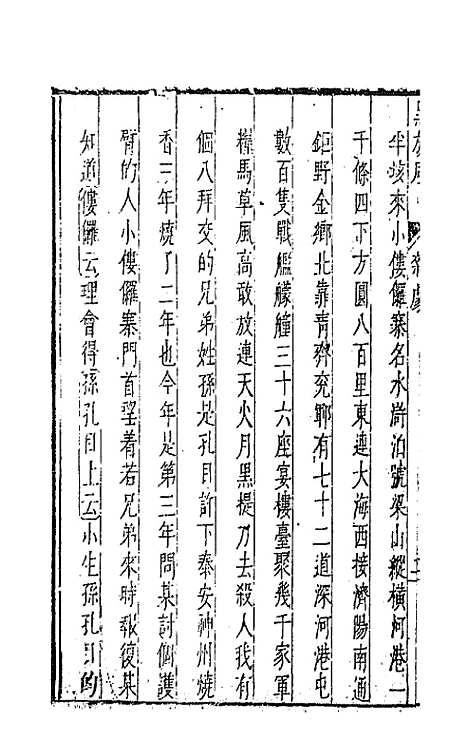 半垓來小僂儸寨名水滸泊號梁山縱橫河港一
千條四下方圓八百里東連大海西接濟陽南通
鉅野金鄉北靠青齊兗鄆有七十二道深河港屯
數百隻戰艦艨艟三十六座宴樓臺聚幾千家軍
糧馬草風高敢放連天火月黑提刀去殺人我有
個八拜交的兄弟姓孫是孔目許下泰安神州燒
香三年燒了二年也今年是第三年問某討個護
臂的人小僂儸寨門首望着若兄弟來時報復某
知道僂儸云理會得孫孔目上云小生孫孔目的